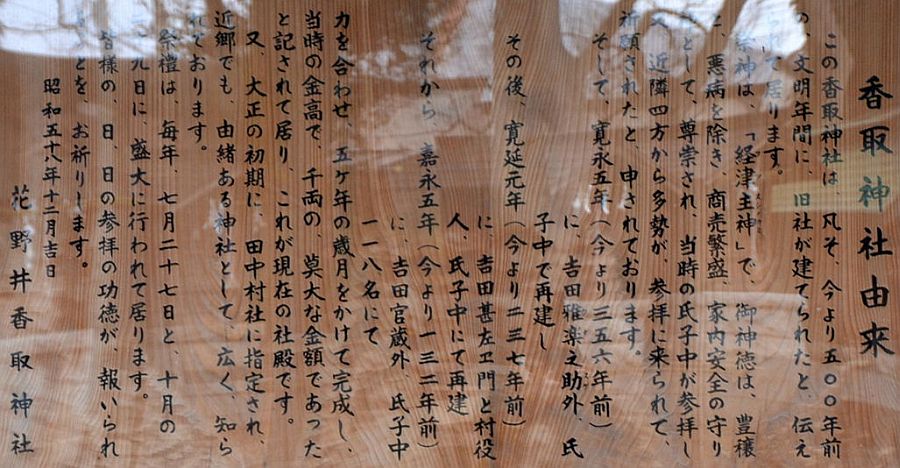 香取神社由来
この香取神社は 凡そ、今より五〇〇年前
の、文明年間に、旧社が建てられたと、伝え
られて居ります。
祭神は、「経津主神」で、御神徳は、豊穣
と、悪病を除き、商売繁盛、家内安全の守り
として、尊崇され、当時の氏子中が参拝し
又、近隣四方から多勢が、参拝に来られて、
祈願されたと、申されております。
そして、寛永五年(今より三五六年前)
に、吉田雅楽之助外、氏
子中で再建し
その後、寛延元年(今より二三七年前)
に 吉田甚左ヱ門と村役
人、氏子中にて再建
それから 嘉永五年(今より一三二年前)
に、吉田官蔵外、氏子中
一一八名にて
力を合わせ、五ヶ年の歳月をかけて完成し、
当時の金高で、千両の、莫大な金額であった
と記されて居り、これが現在の社殿です。
又、大正の初期に、田中村社に指定され、
近郷でも、由緒ある神社として、広く、知ら
れております。
祭禮は、毎年、七月二十七日と、十月の
九日に、盛大に行われて居ります。
皆様の、日、日の参拝の功徳が、報いられ
とを、お祈りします。
昭和五十八年十二月吉日
花野井香取神社